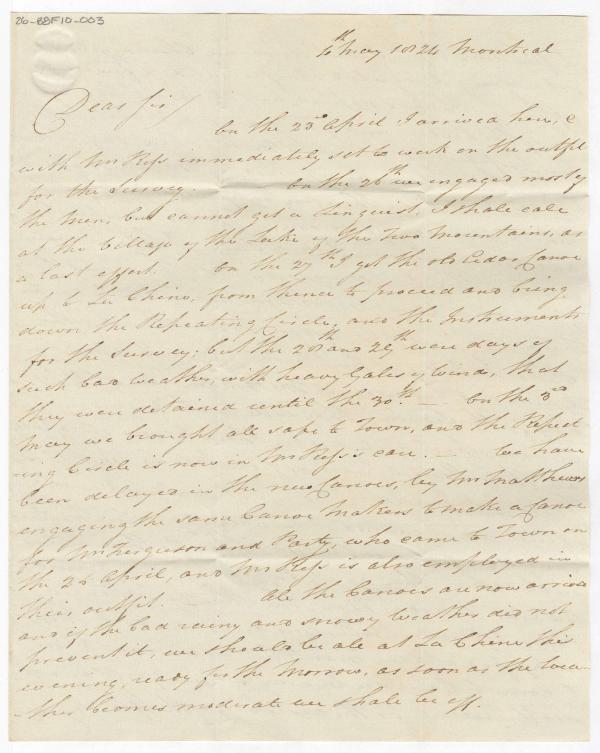 26-BBF10-003
4th May 1824 Montreal
Dear Sir/
On the 23d April I arrived here, &
with Mr Hess immediately set to work on the outfit
for the Survey. On the 26th we engaged most of
the Men, but cannot get a Linguist, I shall call
at the Village of the Lake of the Two Mountains, as
a last effort. On the 27th I got the old Cedar Canoe
up to La Chine, from thence to proceed and bring
down the Repeating Circle, and the Instruments
for the Survey; but the 28 and 29th were days of
such bad weather, with heavy Gales of Wind, that
they were detained until the 30th. — On the 3d
May we brought all safe to Town, and the Repeat
-ing Circle is now in Mr Hess's care. — We have
been delayed in the new Canoes, by Mr Matthews
engaging the same Canoe Makers to make a Canoe
for Mr Ferguson and Party, who came to Town on
the April, and Mr Hess is also employed in
their outfit. All the Canoes are now arrived
and if the bad rainy and snowy weather did not
prevent it, we should be all at La Chine this
evening, ready for the Morrow, as soon as the wea-
-ther becomes moderate we shall be off.